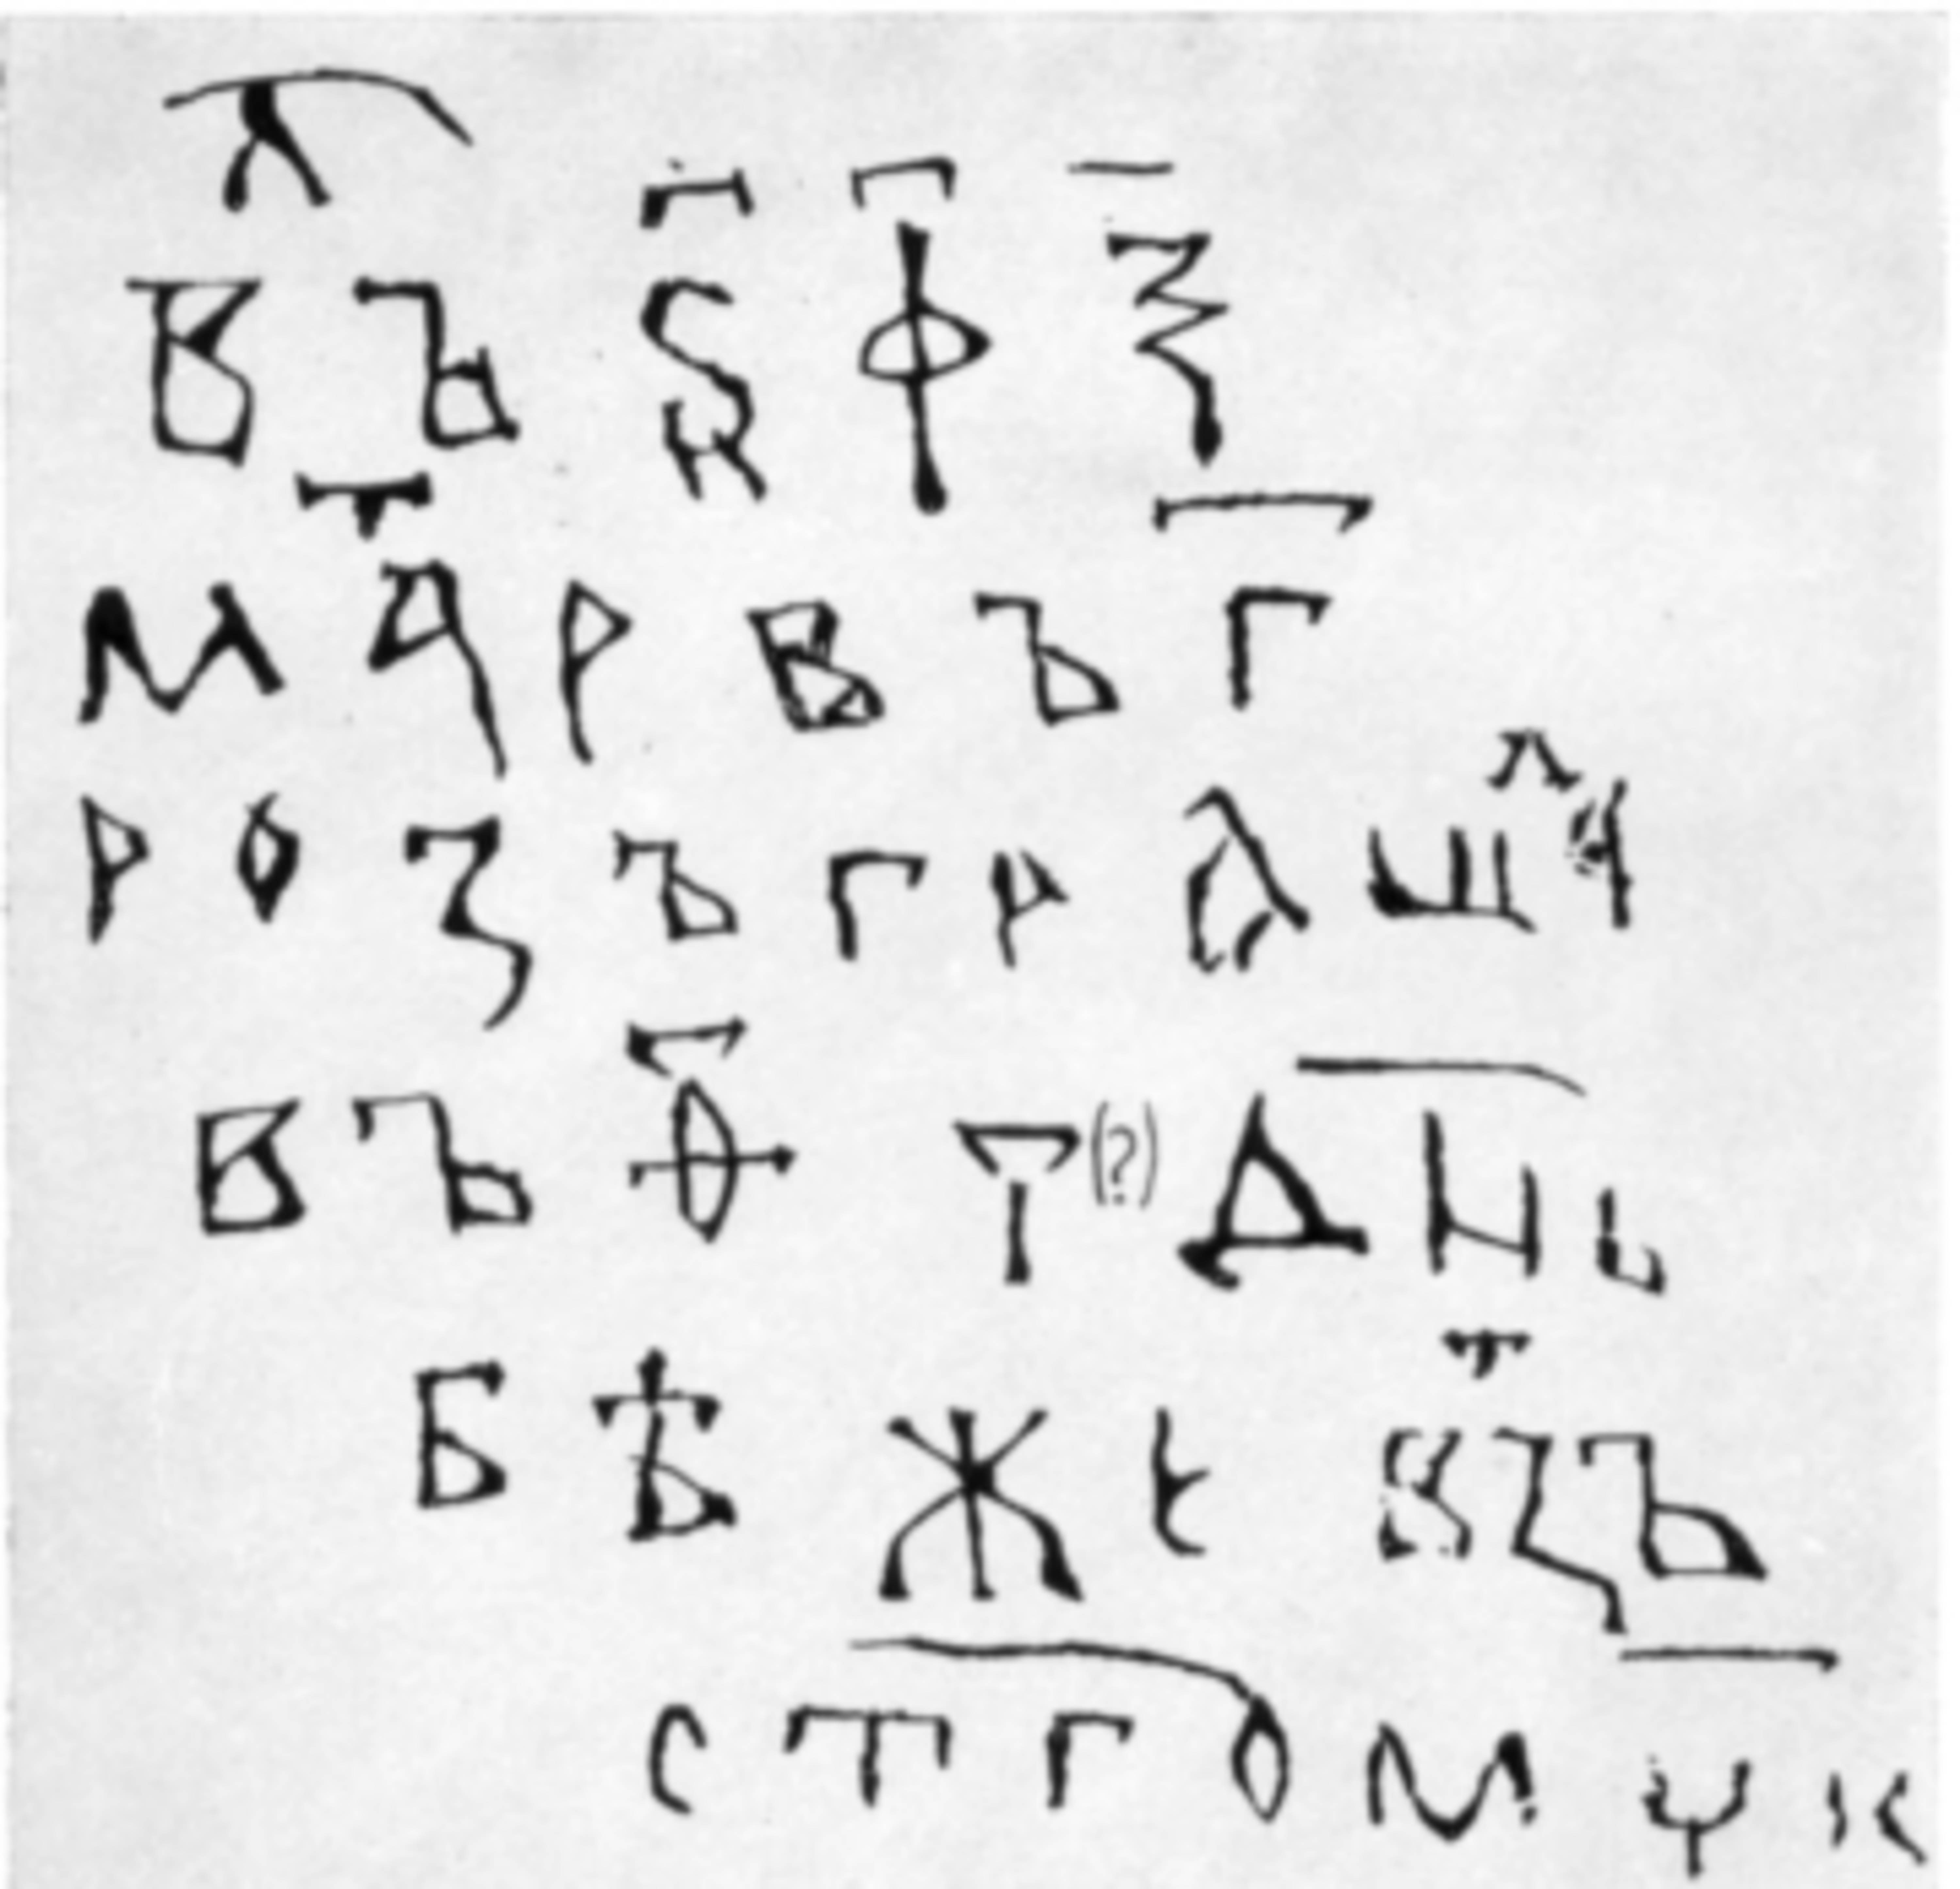 въⷧ ҂ѕ҃ ф҃ ѯ҃
маⷬ҇р въ г҃
розъгрѧшⷧа
въ ѳ҃ т(?) дн҃ь
бѣ же вⷮзъ
ст҃го мч҃к